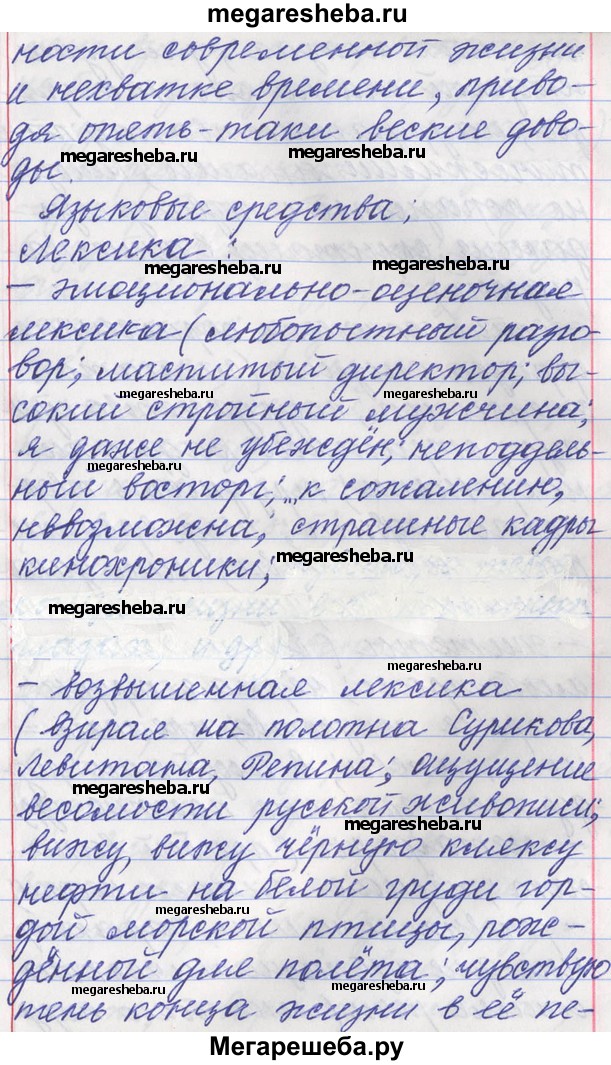 megaresheba.ru
ности современной жизни
и нехватке времени, приво-
дя опять-таки веские дово-
ды.
megaresheba.ru
megaresheba.ru
Языковые средства:
Лексика:
megaresheba.ru
megaresheba.ru
– эмоционально-оценочная
лексика (любопытный разго-
вор; маститый директор; вы-
megaresheba.ru
megaresheba.ru
сокий стройный мужчина;
я даже не убеждён; неподдель-
megaresheba.ru
ный восторг; к сожалению,
невозможна; страшные кадры
megaresheba.ru
кинохроники;
megaresheba.ru
megaresheba.ru
– возвышенная лексика
(взирал на полотна Сурикова,
Левитана, Репина; ощущение
megaresheba.ru
весомости русской живописи;
megaresheba.ru
вижу, вижу чёрную кляксу
нефти на белой груди гор-
megaresheba.ru
дой морской птицы, рож-
дённой для полёта; чувствую
megaresheba.ru
megaresheba.ru
тень конца жизни в её пе-
Мегарешеба.ру